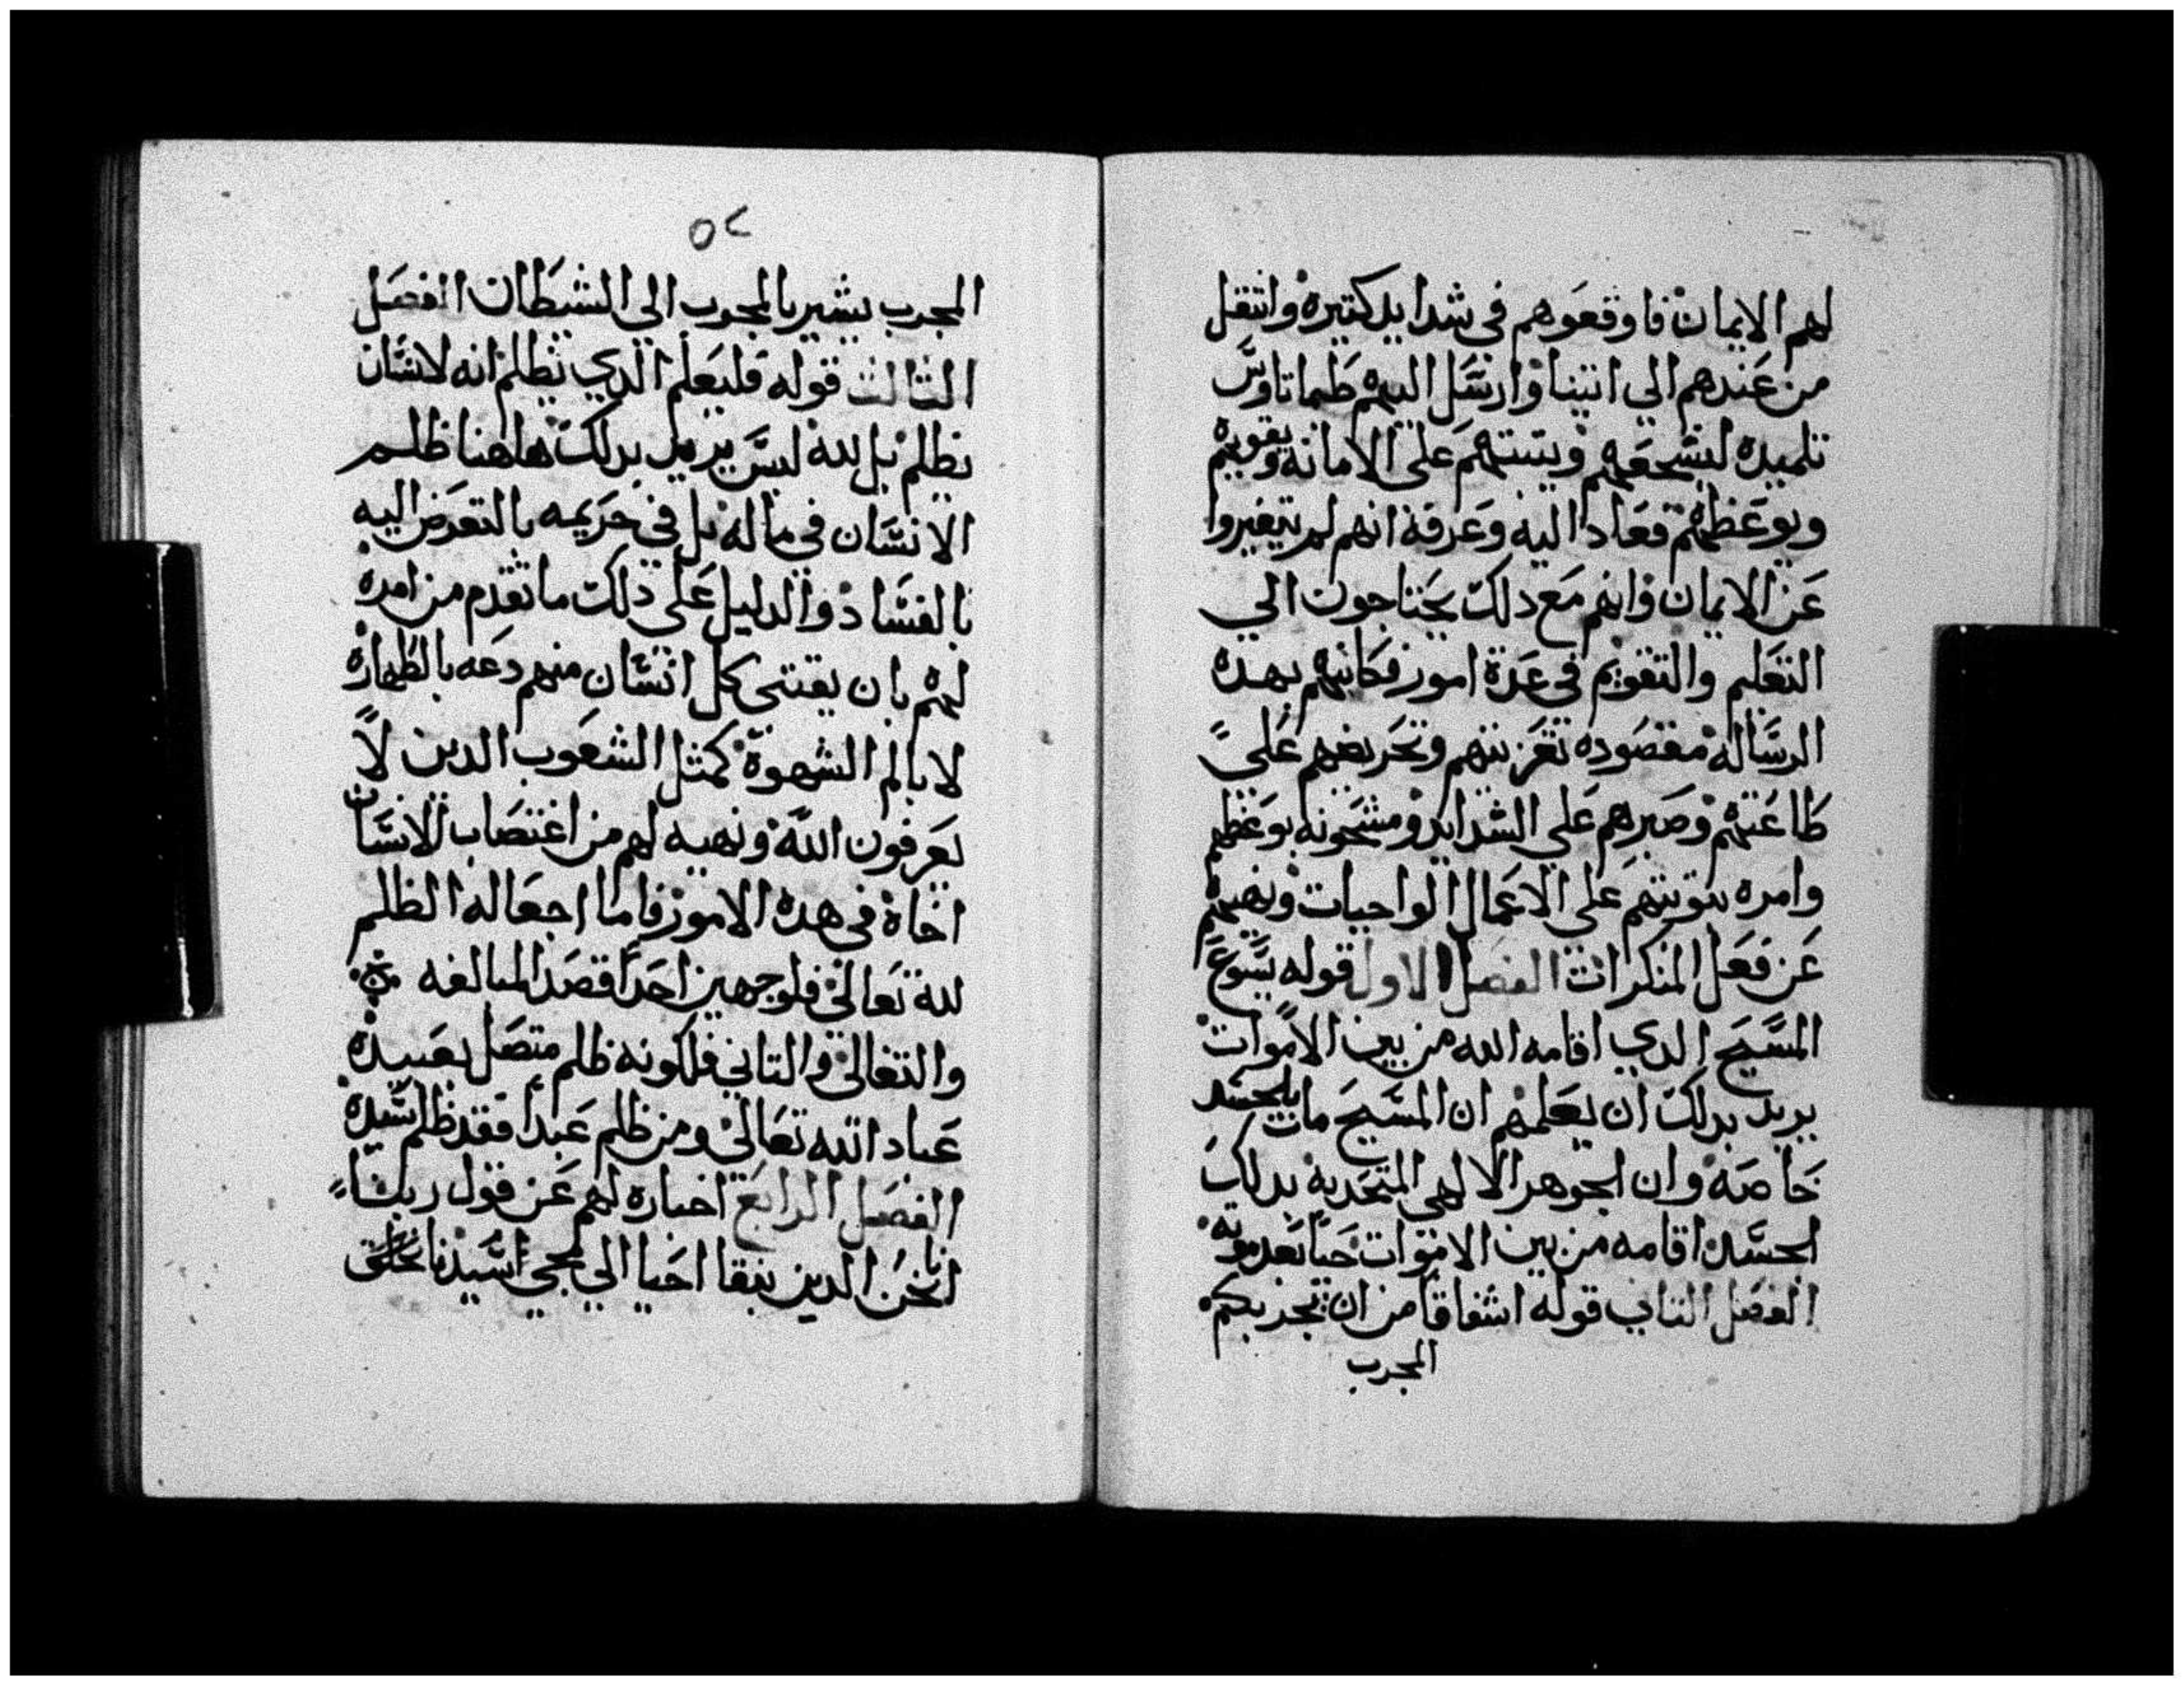 لهم الايمان فاوقعوهم في شدايد كتيرة وانتقل
من عندهم الي اتينا وارسل اليهم طيماتاوس
تلميده ليشجعهم ويتبتهم علي الامانه ويقويهم
ويوعظهم فعاد اليه وعرفه انهم لم يتغيروا
عن الايمان وانهم مع دلك يحتاجون الي
التعليم والتقويم في عدة امور فكاتبهم بهده
الرسالة مقصوده تعزيتهم وتحريضهم علي
طاعتهم وصبرهم علي الشدايد ومشحونه بوعظهم
وامره بتوبتهم علي الاعمال الواجبات ونهيهم
عن فعل المنكرات الفصل الاول قوله يسوع
المسيح الدي اقامه الله من بين الاموات
يريد بدلك ان يعلمهم ان المسيح مات بالجسد
خاصة وان الجوهر الالهي المتحد به بدلك
الجسد اقامه من بين الاموات حيا بعد موته
الفصل التاني قوله اشفاقا من ان يجربكم
المجرب
٥٢
المجرب يشير بالمجرب الي الشيطان الفصل
التالت قوله فليعلم الدي يظلم انه لانسان
يظلم بل لله ليس يريد بدلك هاهنا ظلم
الانسان في ماله بل في حريمه بالتعرض اليه
بالفساد والدليل علي دلك ما تقدم من امره
لهم بان يقتني كل انسان منهم دعه بالطهارة
لا بالم الشهوة كمتل الشعوب الدين لا
يعرفون الله ونهيه لهم من اغتصاب الانسان
اخاه في هده الامور فاما اجعاله الظلم
لله تعالي فلوجهين احدا قصد المبالغه
والتغالي والتاني فلكونه ظلم متصل بعبيده
عباد الله تعالي ومن ظلم عبدا فقد ظلم سيده
الفصل الرابع اخباره لهم عن قول ربنا
اننا نحن الدين نبقا احيا الي مجي سيدنا نلحق